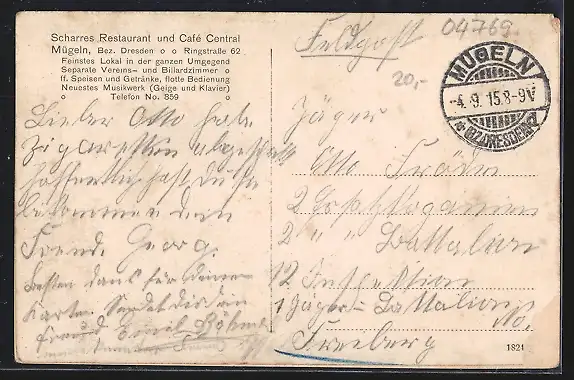 Scharres Restaurant und Café Central
Mügeln, Bez. Dresden o o Ringstraße 62
Feinstes Lokal in der ganzen Umgegend
Separate Vereins- und Billardzimmer o
ff. Speisen und Getränke, flotte Bedienung
Neuestes Musikwerk (Geige und Klavier)
o Telefon No. 859 o
04769
Feldpost
20,-
MÜGELN
-4. 9. 15. 8-9V
* (BZ. DRESDEN)
Lieber Otto habe
Zigaretten abgeschickt
hoffentlich hast du sie
bekommen dein
Freund. Georg.
Besten dank für deine
Karten. Sendet dir dein
freund Emil Böhme
Jäger
Otto
2
2 " " Battalion
12
1 Jäger- Battalion No.
Freiberg
1821